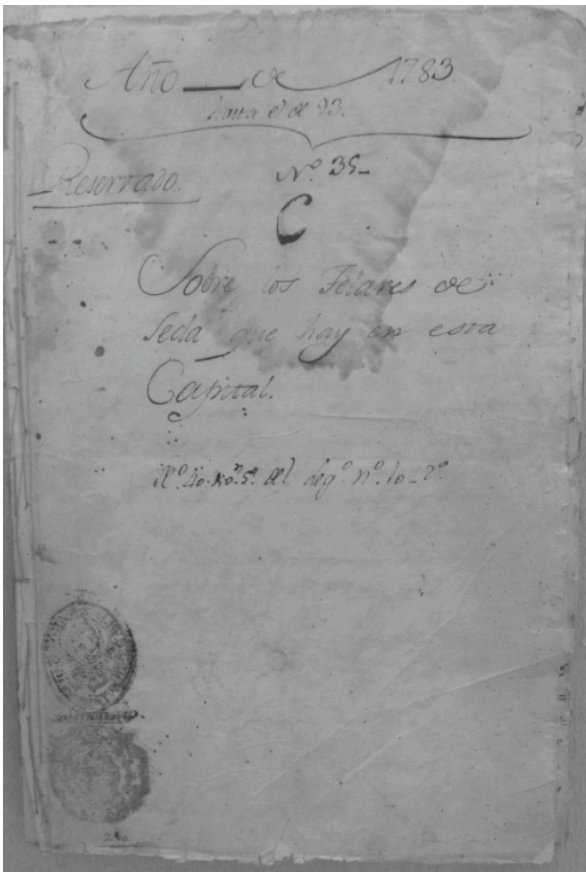 Año de 1783
hasta el de 93.
Reservado.
Nº 35_
C
Sobre los Telares de
Seda que hay en esta
Capital.
del leg.º nº. 10_2º